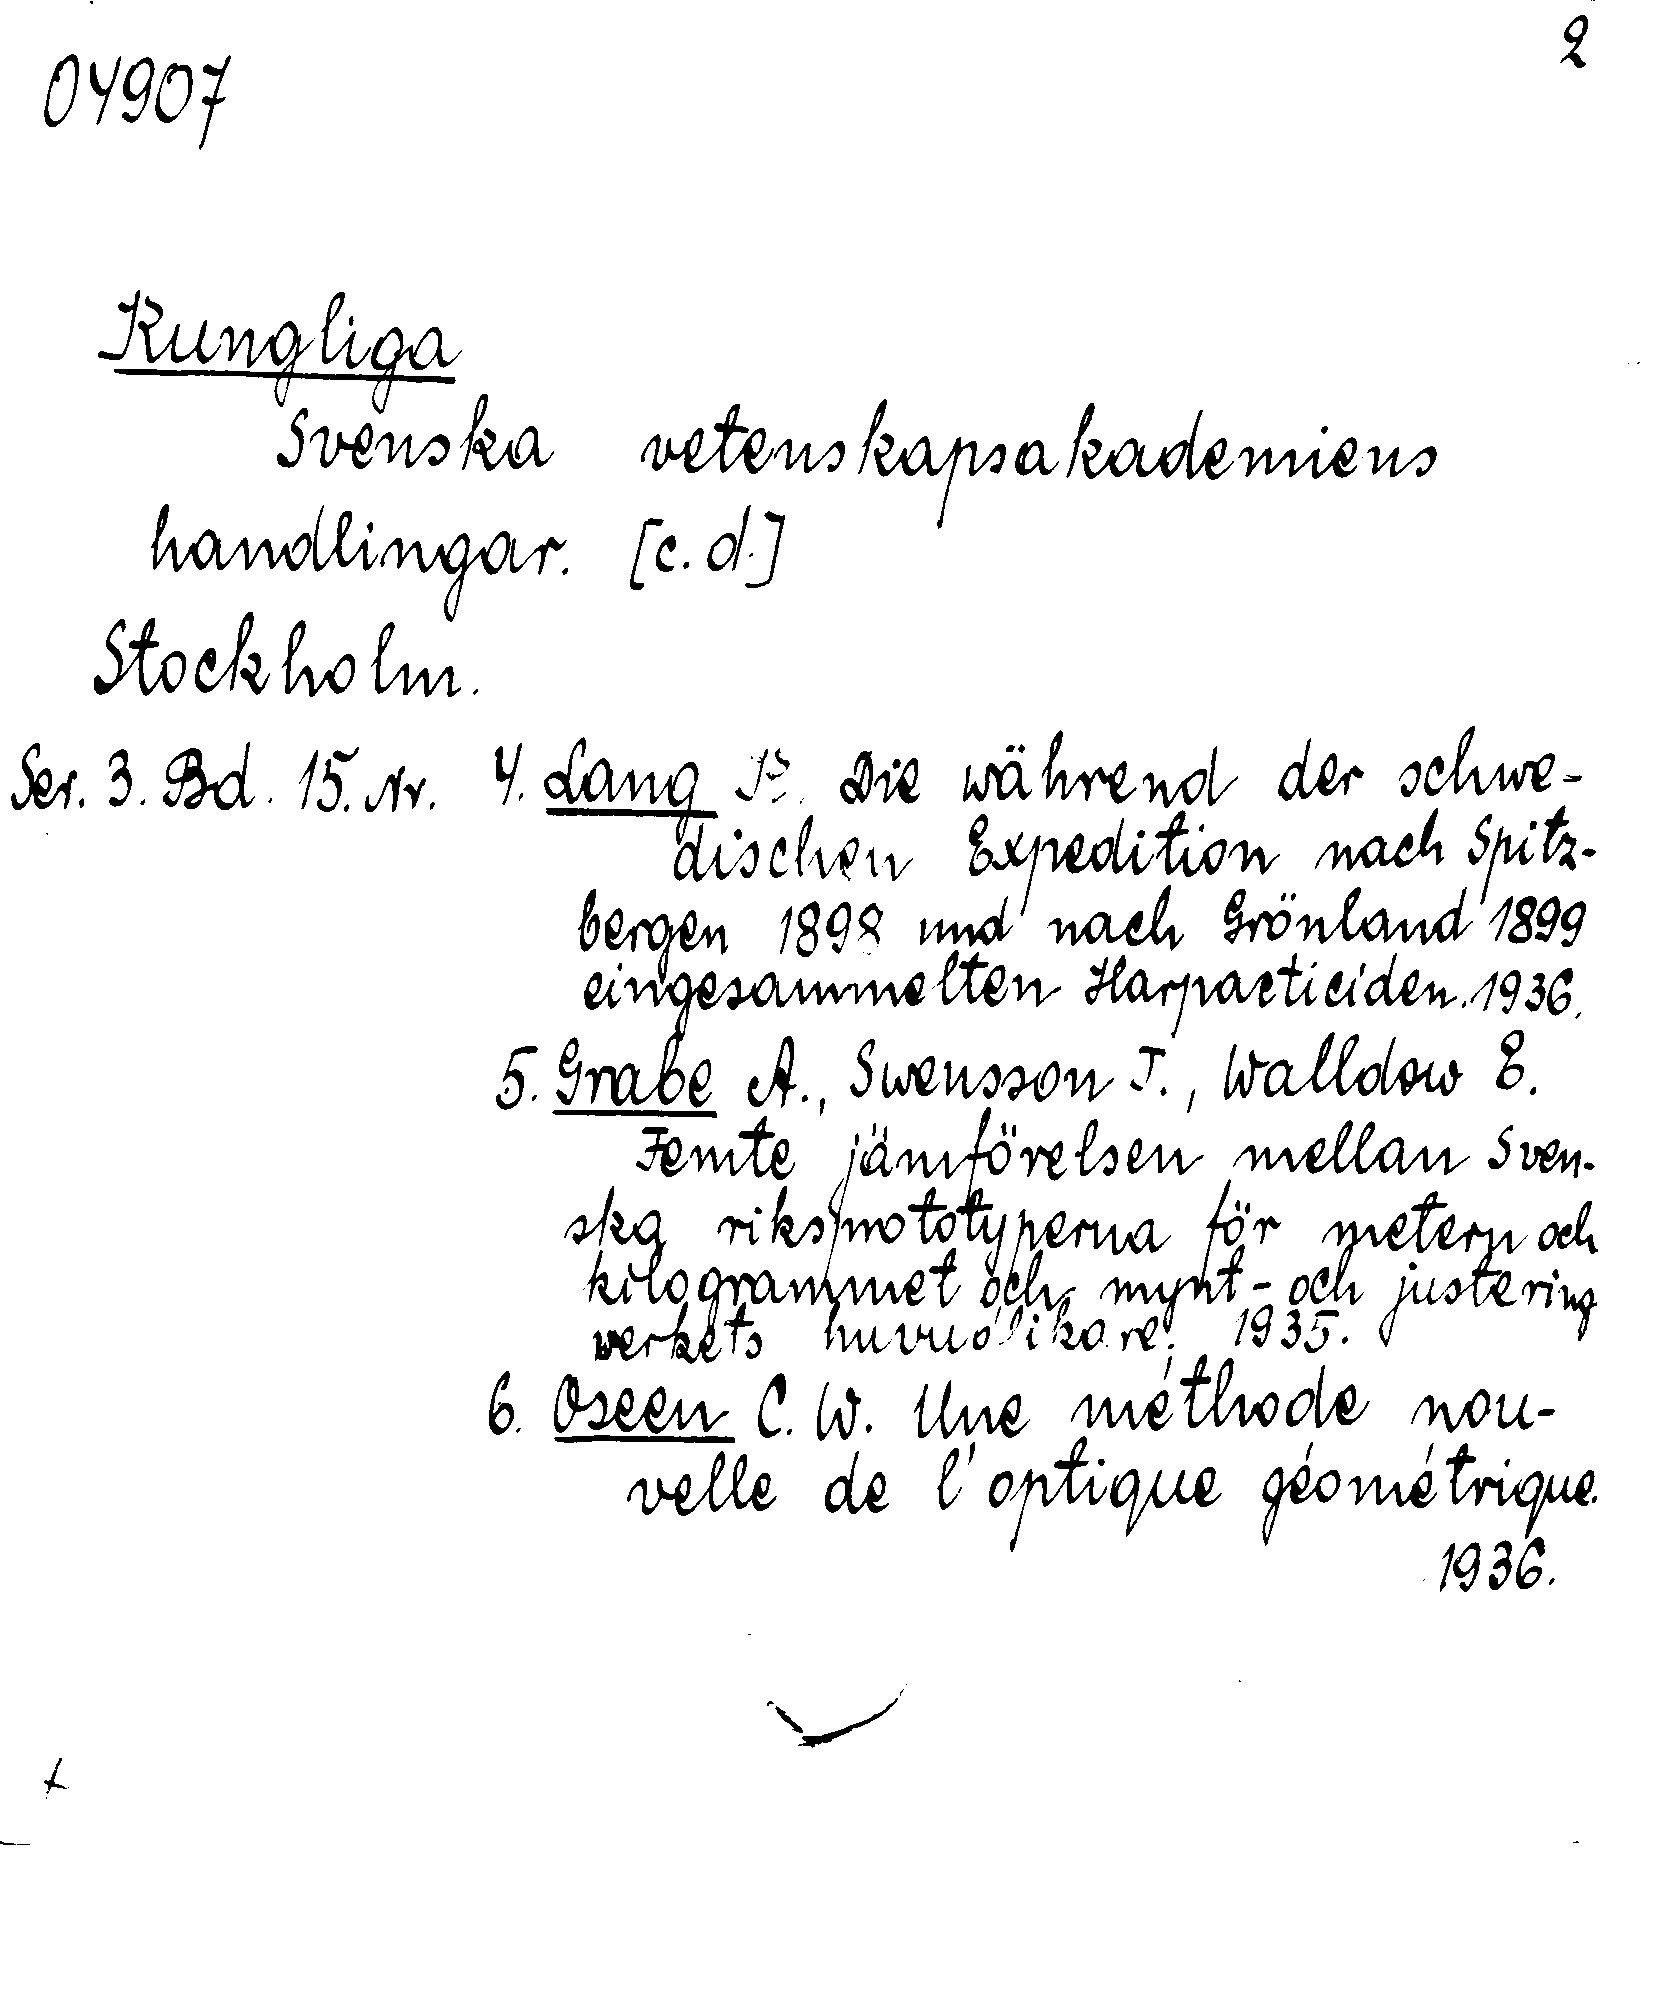 2
04907
Kungliga
Svenska vetenskapsakademiens
handlingar. [c.d.]
Stockholm.
Ser. 3. Bd. 15. Nr. 4. Lang Die während der schwe-
dischen Expedition nach Spitz-
bergen 1898 und nach Grönland 1899
eingesammelten Harpacticiden. 1936.
5. Grabe A., Swensson T., Walldow E.
Femte jämförelsen mellan Sven-
ska riksprototyperna för metern och
kilogrammet och mynt- och justering
verkets huvudlikare. 1935.
6. Oseen C. W. Une méthode nou-
velle de l'optique géométrique.
1936.